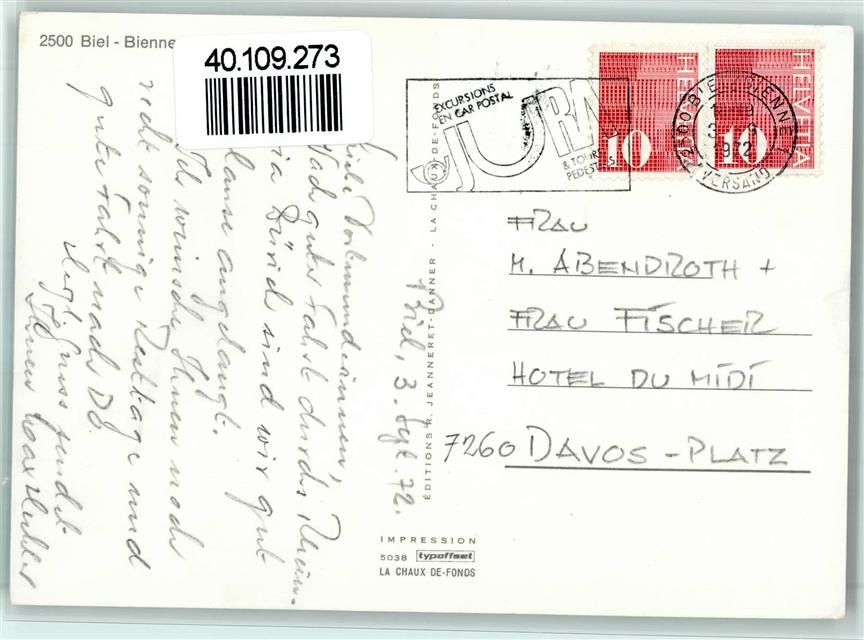 2500 Biel - Bienne
40.109.273
Biel, 3. Sept. 72.
Liebe Dortmunderinnen,
Nach guter Fahrt durchs Rhein-
via Zürich sind wir gut
Hause angelangt.
Ich wünsche Ihnen noch
recht sonnige Resttage und
gute Fahrt nach DO.
Gruss sendet
Ihnen
ÉDITIONS R. JEANNERET-DANNER - LA CHAUX-DE-FONDS
IMPRESSION
5038 typoffset
LA CHAUX DE-FONDS
EXCURSIONS
EN CAR POSTAL
JURA
& TOURS
PEDESTRES
2500 BIEL-BIENNE 1
1972
VERSAND
HELVETIA
10
HELVETIA
10
FRAU
M. ABENDROTH +
FRAU FISCHER
HOTEL DU MIDI
7260 DAVOS - PLATZ